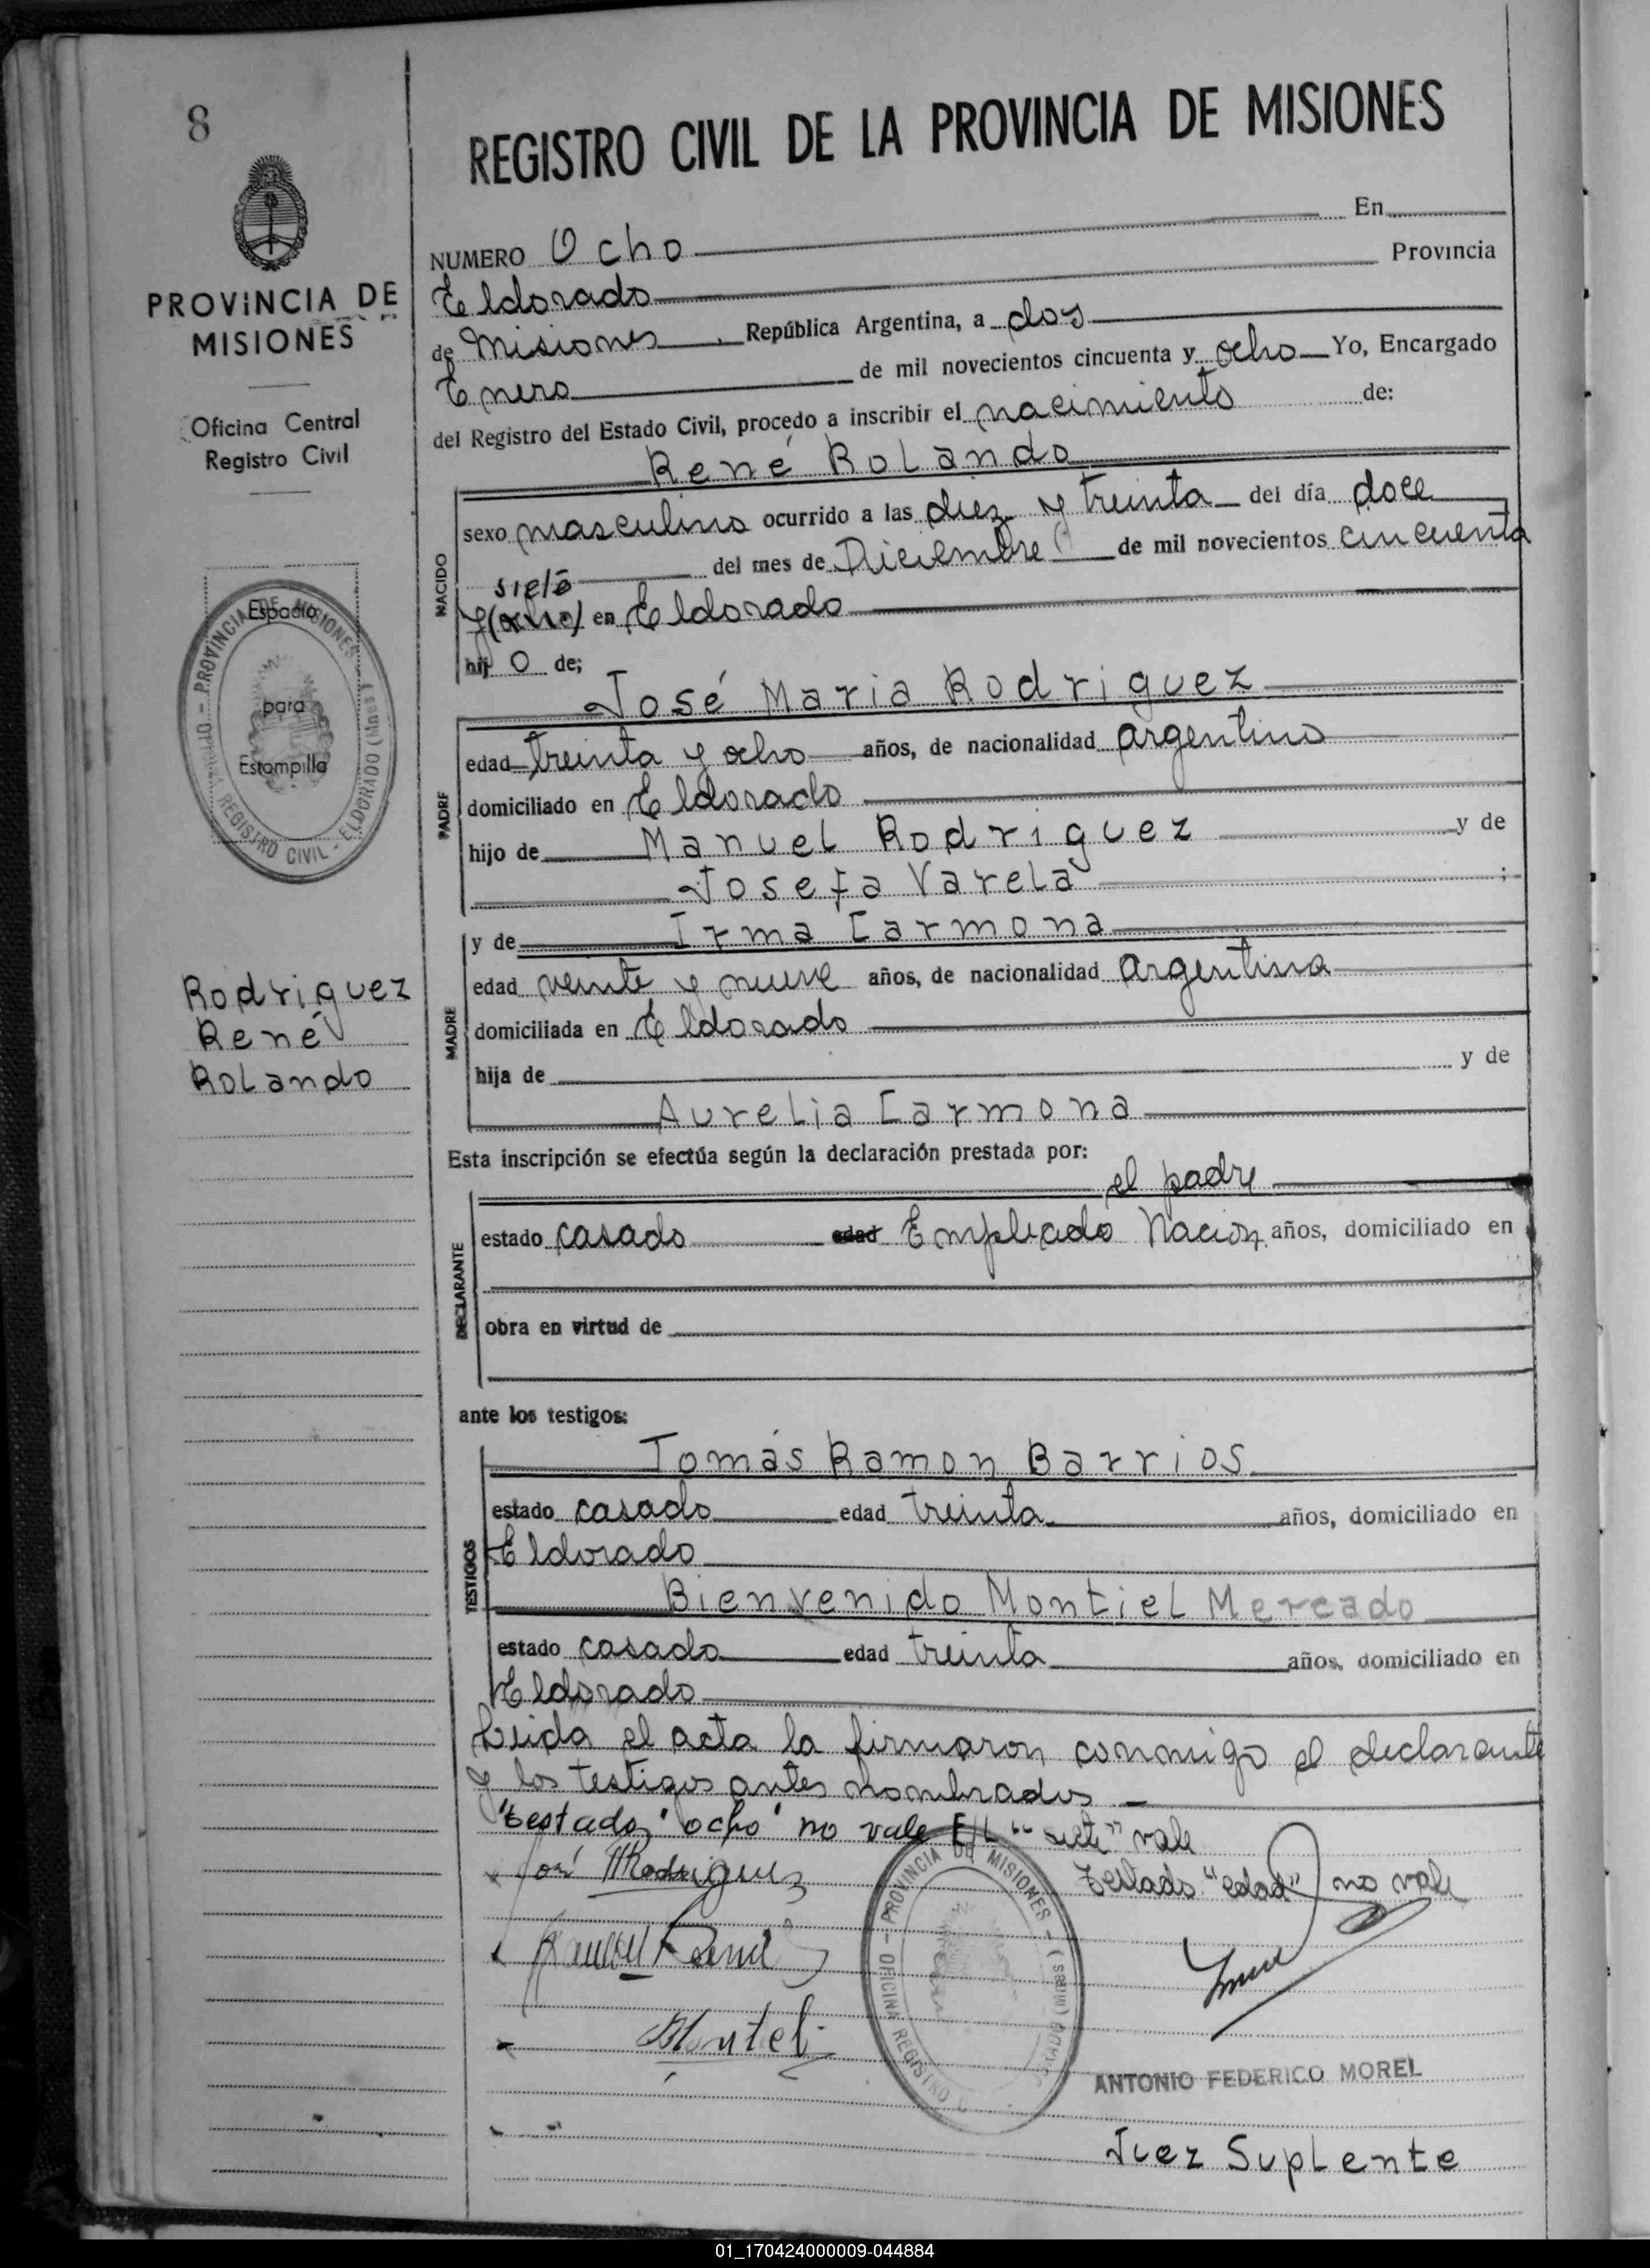 8
REGISTRO CIVIL DE LA PROVINCIA DE MISIONES
PROVINCIA DE
MISIONES
Oficina Central
Registro Civil
NUMERO Ocho En
Eldorado Provincia
de Misiones República Argentina, a dos
Enero de mil novecientos cincuenta y ocho Yo, Encargado
del Registro del Estado Civil, procedo a inscribir el nacimiento de:
René Rolando
NACIDO
sexo masculino ocurrido a las diez y treinta del día doce
del mes de Diciembre de mil novecientos cincuenta
siete
y (ocho) en Eldorado
hij o de;
Espacio
para
Estampilla
PROVINCIA DE MISIONES
REGISTRO CIVIL - ELDORADO (Mnes)
José Maria Rodriguez
PADRE
edad treinta y ocho años, de nacionalidad argentino
domiciliado en Eldorado
hijo de Manuel Rodriguez y de
Josefa Varela ;
y de Irma Carmona
MADRE
edad veinte y nueve años, de nacionalidad argentina
domiciliada en Eldorado
hija de y de
Aurelia Carmona
Rodriguez
René
Rolando
Esta inscripción se efectúa según la declaración prestada por:
el padre
DECLARANTE
estado casado edad Empleado Nacion años, domiciliado en
obra en virtud de
ante los testigos:
TESTIGOS
Tomás Ramon Barrios
estado casado edad treinta años, domiciliado en
Eldorado
Bienvenido Montiel Mercado
estado casado edad treinta años, domiciliado en
Eldorado
Leida el acta la firmaron conmigo el declarante
y los testigos antes nombrados
"Testado, "ocho" no vale E/L "siete" vale
José M Rodriguez
Testado "edad" no vale
PROVINCIA DE MISIONES
OFICINA REGISTRO
Montiel
ANTONIO FEDERICO MOREL
Juez Suplente
01_170424000009-044884